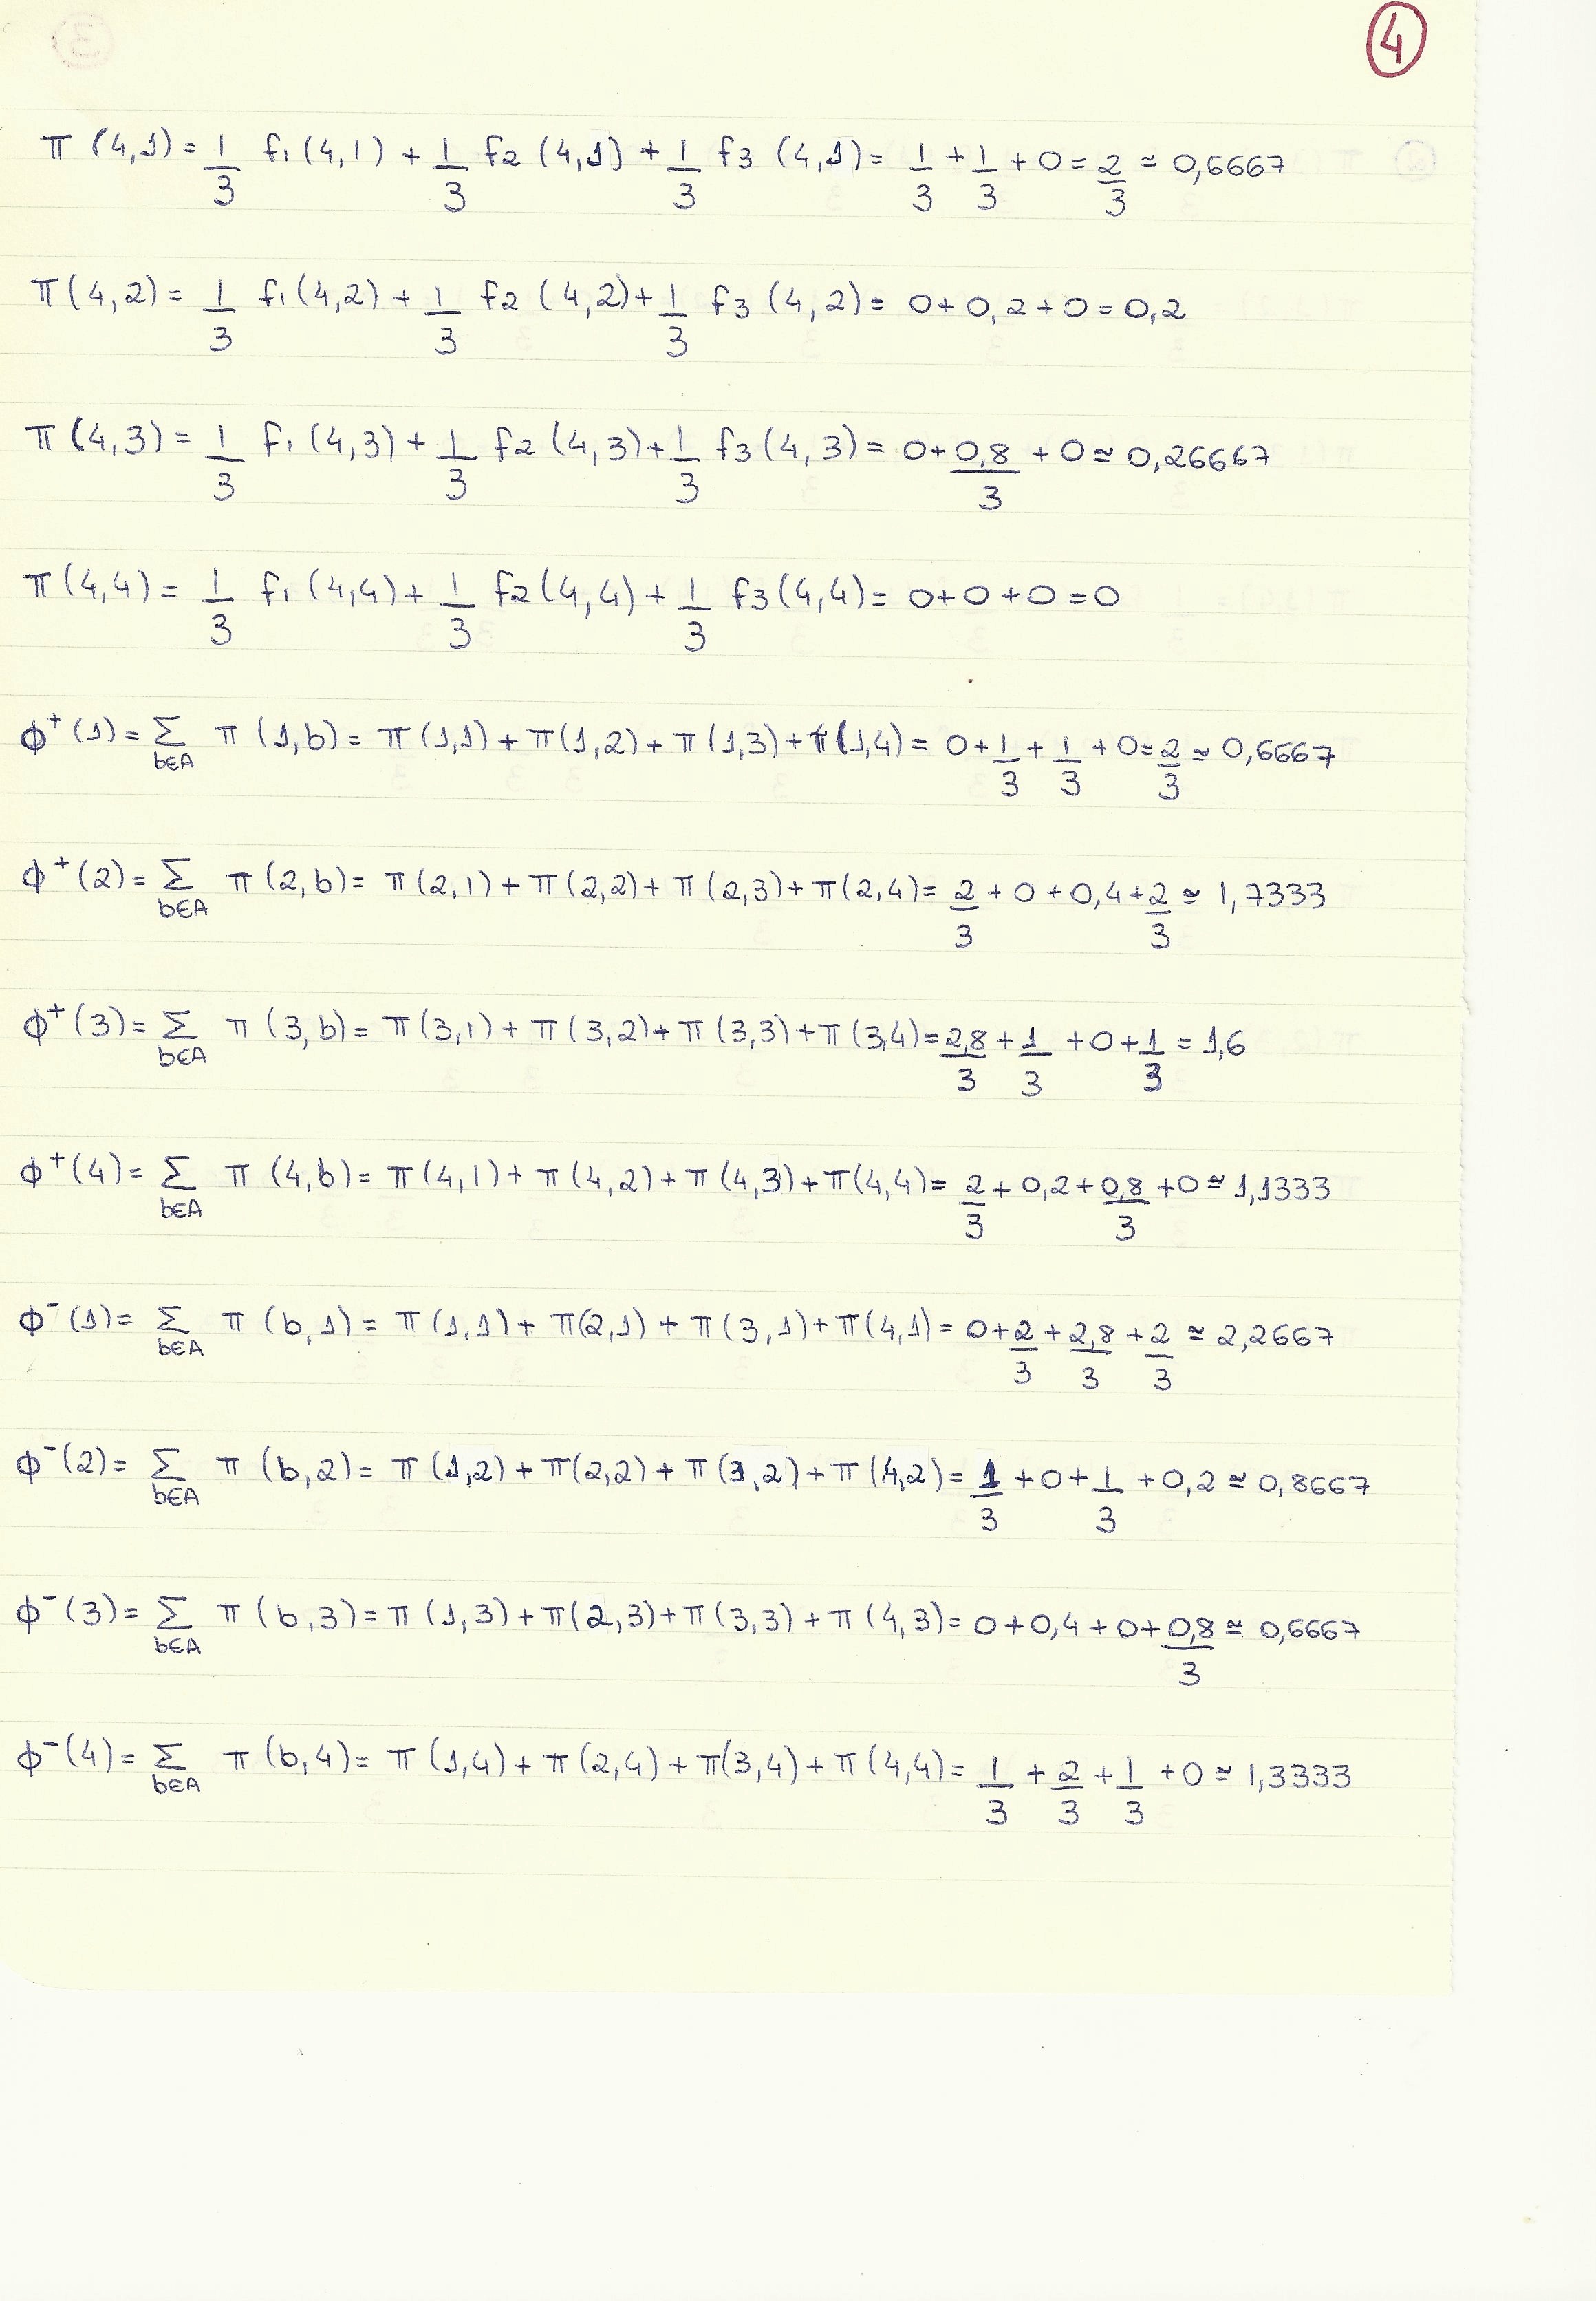 4
π (4,1) = 1/3 f1 (4,1) + 1/3 f2 (4,1) + 1/3 f3 (4,1) = 1/3 + 1/3 + 0 = 2/3 ≃ 0,6667
π (4,2) = 1/3 f1 (4,2) + 1/3 f2 (4,2) + 1/3 f3 (4,2) = 0 + 0,2 + 0 = 0,2
π (4,3) = 1/3 f1 (4,3) + 1/3 f2 (4,3) + 1/3 f3 (4,3) = 0 + 0,8/3 + 0 ≃ 0,26667
π (4,4) = 1/3 f1 (4,4) + 1/3 f2 (4,4) + 1/3 f3 (4,4) = 0 + 0 + 0 = 0
Φ⁺(1) = Σ b∈A π (1,b) = π (1,1) + π (1,2) + π (1,3) + π (1,4) = 0 + 1/3 + 1/3 + 0 = 2/3 ≃ 0,6667
Φ⁺(2) = Σ b∈A π (2,b) = π (2,1) + π (2,2) + π (2,3) + π (2,4) = 2/3 + 0 + 0,4 + 2/3 ≃ 1,7333
Φ⁺(3) = Σ b∈A π (3,b) = π (3,1) + π (3,2) + π (3,3) + π (3,4) = 2,8/3 + 1/3 + 0 + 1/3 = 1,6
Φ⁺(4) = Σ b∈A π (4,b) = π (4,1) + π (4,2) + π (4,3) + π (4,4) = 2/3 + 0,2 + 0,8/3 + 0 ≃ 1,1333
Φ⁻(1) = Σ b∈A π (b,1) = π (1,1) + π (2,1) + π (3,1) + π (4,1) = 0 + 2/3 + 2,8/3 + 2/3 ≃ 2,2667
Φ⁻(2) = Σ b∈A π (b,2) = π (1,2) + π (2,2) + π (3,2) + π (4,2) = 1/3 + 0 + 1/3 + 0,2 ≃ 0,8667
Φ⁻(3) = Σ b∈A π (b,3) = π (1,3) + π (2,3) + π (3,3) + π (4,3) = 0 + 0,4 + 0 + 0,8/3 ≃ 0,6667
Φ⁻(4) = Σ b∈A π (b,4) = π (1,4) + π (2,4) + π (3,4) + π (4,4) = 1/3 + 2/3 + 1/3 + 0 ≃ 1,3333